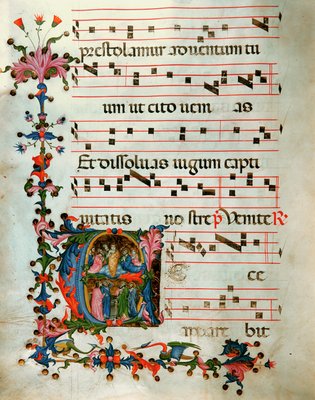 prestolamur adventum tu
um ut cito veni as
Et dissolvas iugum capti
vitatis nostre p̱ Venite R
E cce
apparebit